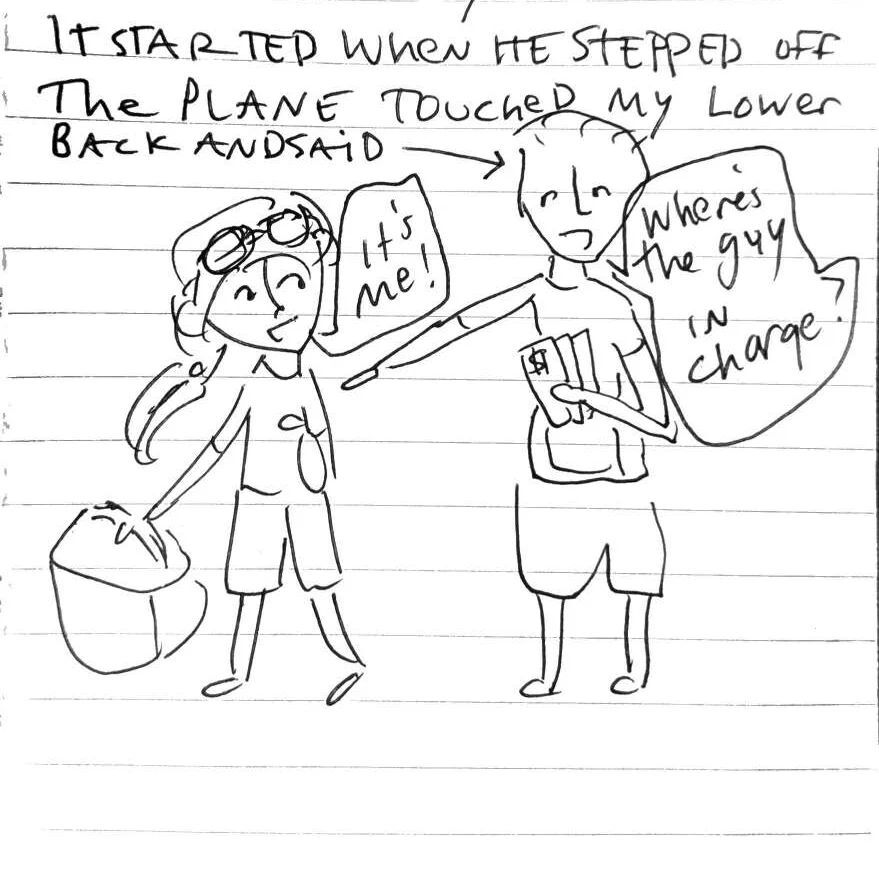 IT STARTED WHEN HE STEPPED OFF
The PLANE TOUCHED MY LOWER
BACK AND SAiD
It's
me!
Where's
the guy
iN
charge?
$